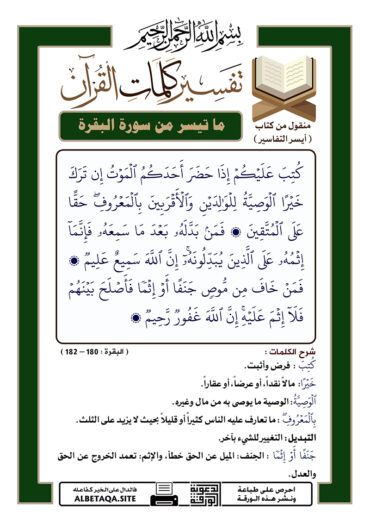 بِسْمِ اللَّهِ الرَّحْمَٰنِ الرَّحِيمِ
تفسير كلمات القرآن
ما تيسر من سورة البقرة
منقول من كتاب
( أيسر التفاسير )
كُتِبَ عَلَيْكُمْ إِذَا حَضَرَ أَحَدَكُمُ ٱلْمَوْتُ إِن تَرَكَ
خَيْرًا ٱلْوَصِيَّةُ لِلْوَٰلِدَيْنِ وَٱلْأَقْرَبِينَ بِٱلْمَعْرُوفِ ۖ حَقًّا
عَلَى ٱلْمُتَّقِينَ ۝ فَمَنۢ بَدَّلَهُۥ بَعْدَ مَا سَمِعَهُۥ فَإِنَّمَآ
إِثْمُهُۥ عَلَى ٱلَّذِينَ يُبَدِّلُونَهُۥٓ ۚ إِنَّ ٱللَّهَ سَمِيعٌ عَلِيمٌ ۝
فَمَنْ خَافَ مِن مُّوصٍ جَنَفًا أَوْ إِثْمًا فَأَصْلَحَ بَيْنَهُمْ
فَلَآ إِثْمَ عَلَيْهِ ۚ إِنَّ ٱللَّهَ غَفُورٌ رَّحِيمٌ ۝
شرح الكلمات :
( البقرة : 180 – 182 )
كُتِبَ : فرض وأثبت.
خَيْرًا: مالاً نقداً، أو عرضاً، أو عقاراً.
ٱلْوَصِيَّةُ: الوصية ما يوصى به من مال وغيره.
بِٱلْمَعْرُوفِ ۖ : ما تعارف عليه الناس كثيراً أو قليلاً بحيث لا يزيد على الثلث.
التبديل: التغيير للشيء بآخر.
جَنَفًا أَوْ إِثْمًا : الجنف: الميل عن الحق خطأ، والإثم: تعمد الخروج عن الحق
والعدل.
احرص على طباعة
ونشر هذه الورقة
الدعوية
الورقة
فالدال على الخير كفاعله
ALBETAQA.SITE